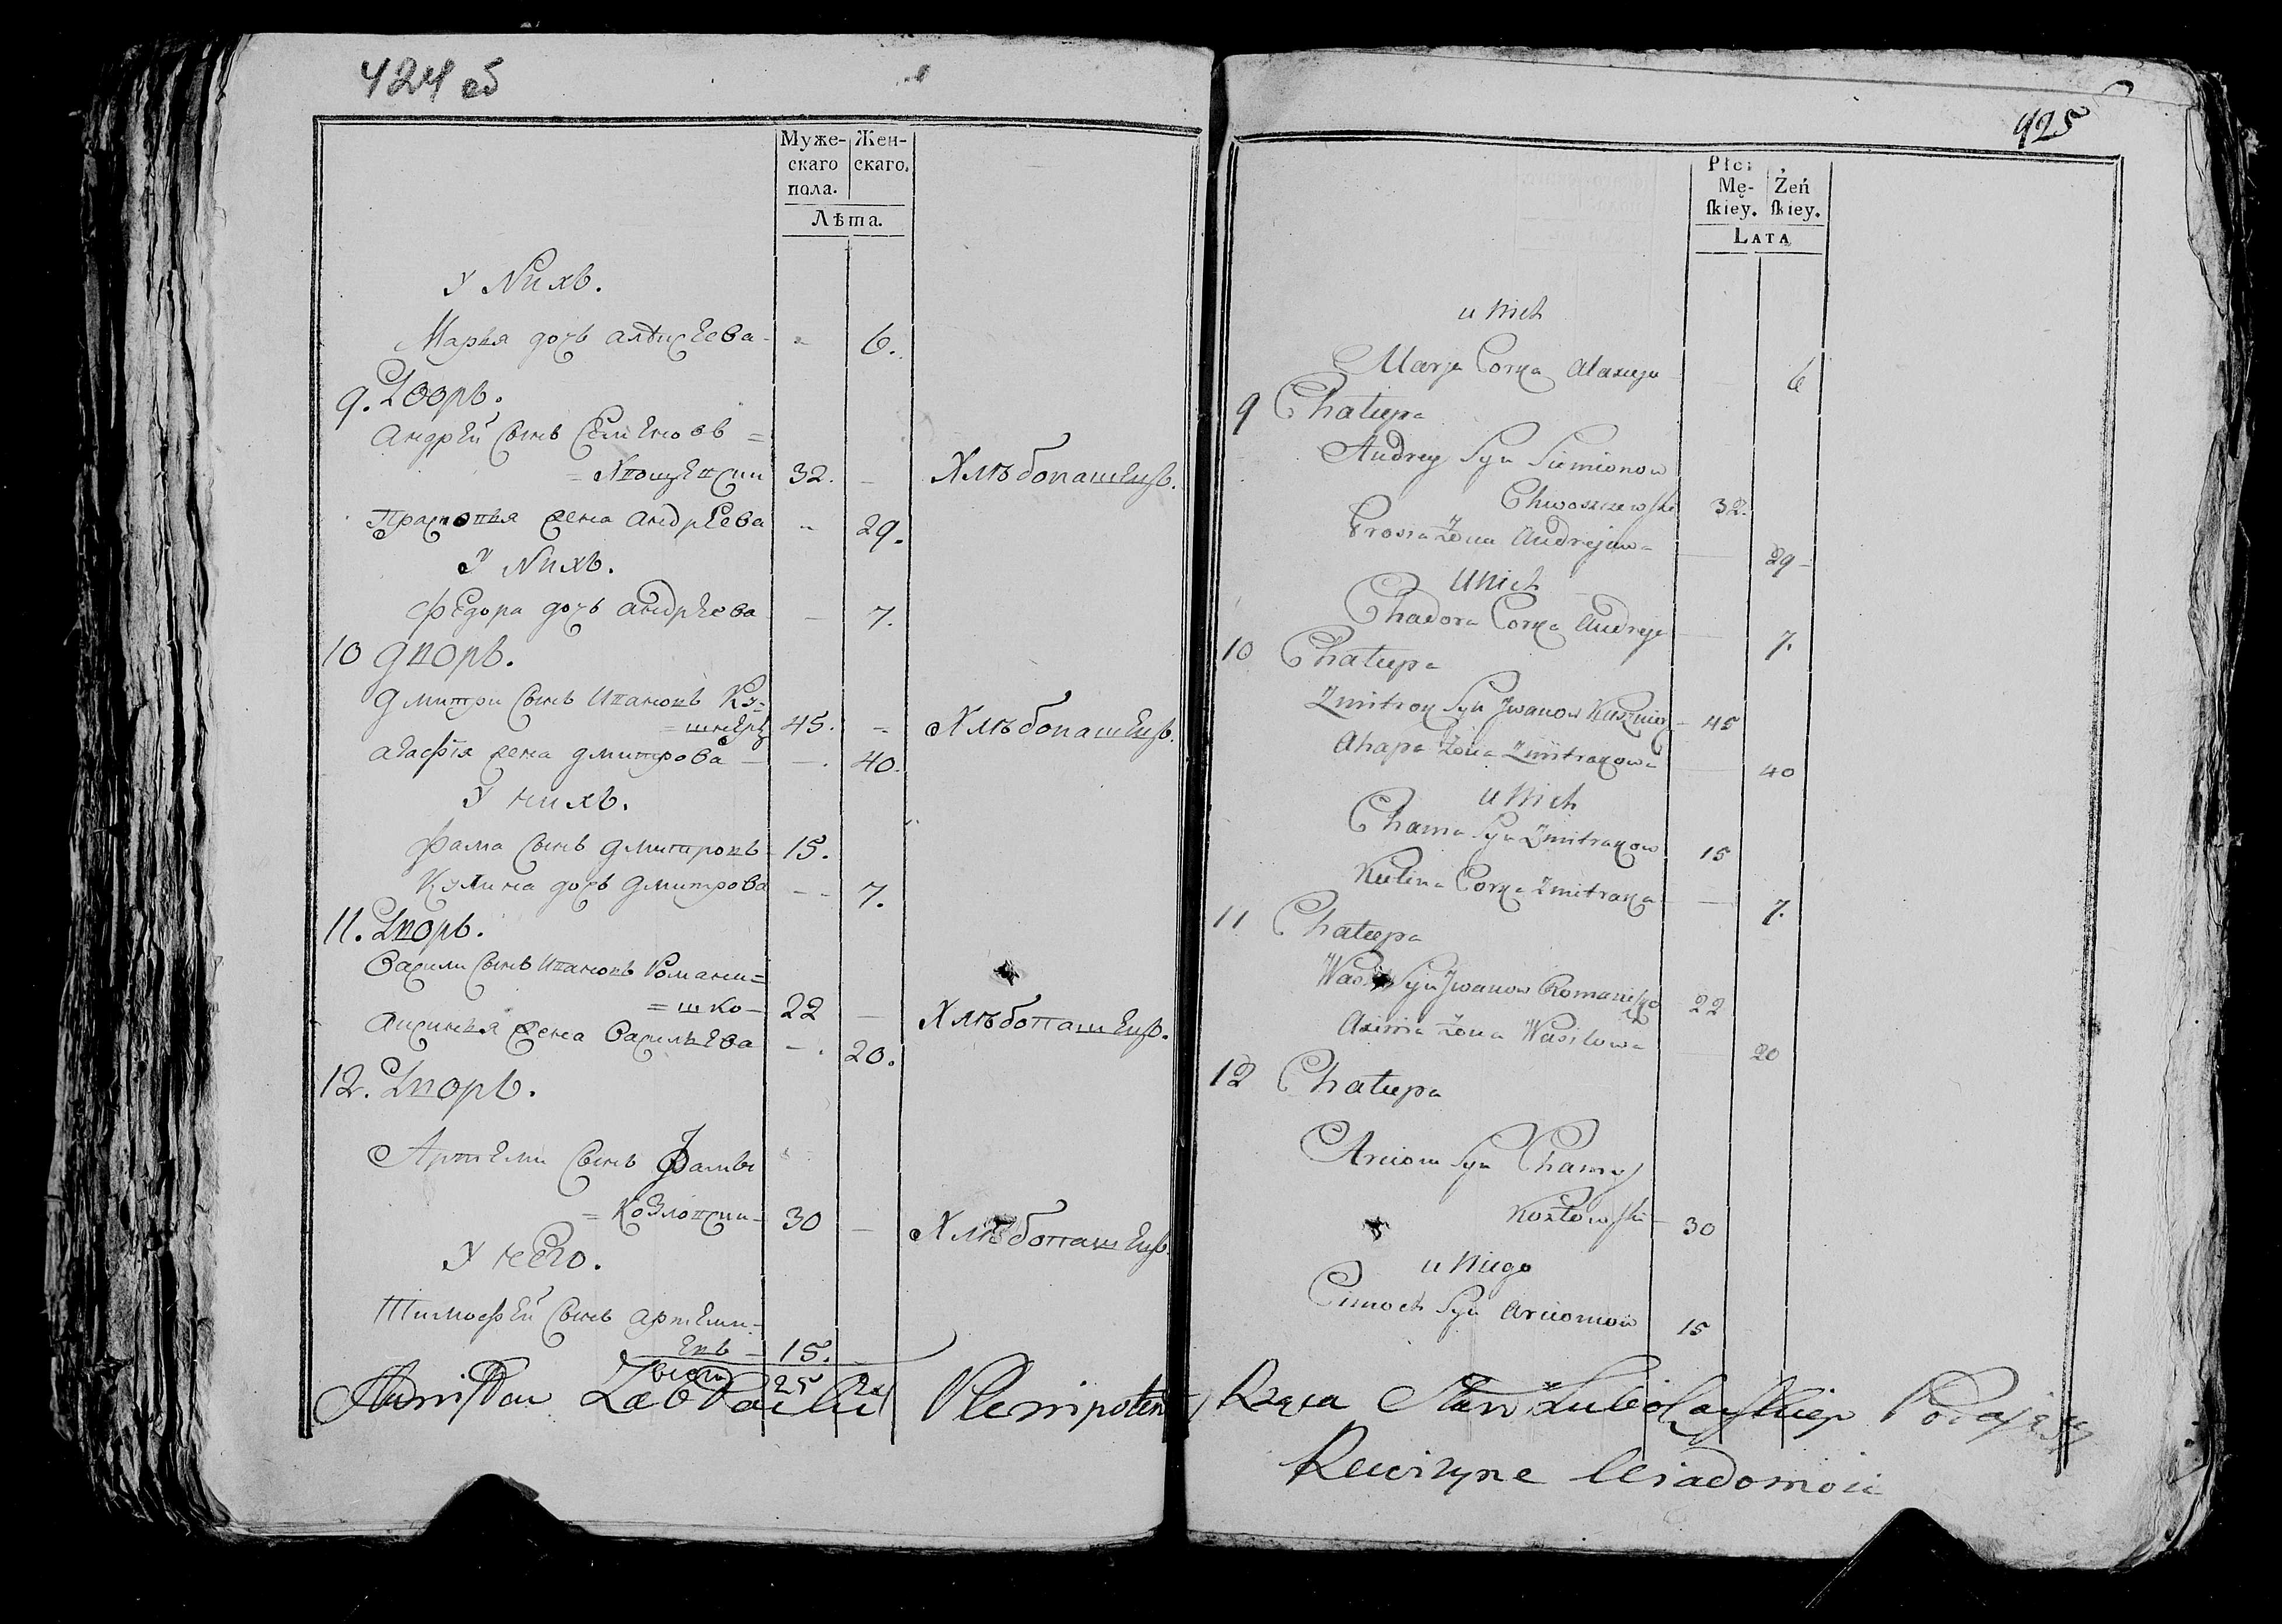 424 об
Муже-
скаго
пола.
Жен-
скаго.
Лѣта.
У Нихъ.
Марья дочь алексеева - 6.
9. Дворъ.
Андрей сынъ Семеновъ =
32. - Хлѣбопашецъ.
Прасковья жена андреева " 29.
У Нихъ.
Федора дочь андреева - 7.
10 дворъ.
дмитри сынъ Ивановъ Ку=
=шнеръ 45. - Хлѣбопашецъ.
агафія жена дмитрова - 40.
У нихъ.
фама сынъ дмитровъ 15.
Кулина дочь дмитрова - 7.
11. Дворъ.
Васили сынъ Ивановъ Романи=
=шко - 22 - Хлѣбопашецъ.
Аксинья жена Васильева - 20.
12. Дворъ.
Артеми сынъ фамы
=Козловски - 30 - Хлѣбопашецъ.
У него.
Тимофей сынъ артеми-
евъ - 15.
25
Plenipotent
425
Płci
Mę-
ſkiey.
Żeń
ſkiey.
LATA
u Nich
Marja Corka Alaxeja 6
9 Chałupa
Andrey Syn Siemionow
Chwoszczewſki 32.
Prosia Żona Andrejowa 29
U Nich
Chadora Corka Andreja 7.
10 Chałupa
Zmitrok Syn Jwanow Kusznierz 45
Ahapa Żona Zmitrakowa 40
u Nich
Chama Syn Zmitrakow 15
Kulina Corka Zmitraka 7.
11 Chałupa
Wasil Syn Jwanow Romaniszko 22
Axinia Żona Wasilowa 20
12 Chałupa
Arciom Syn Chamy
Kozłowſki 30
u Niego
Cimoch Syn Arciomow 15
Rewizyne